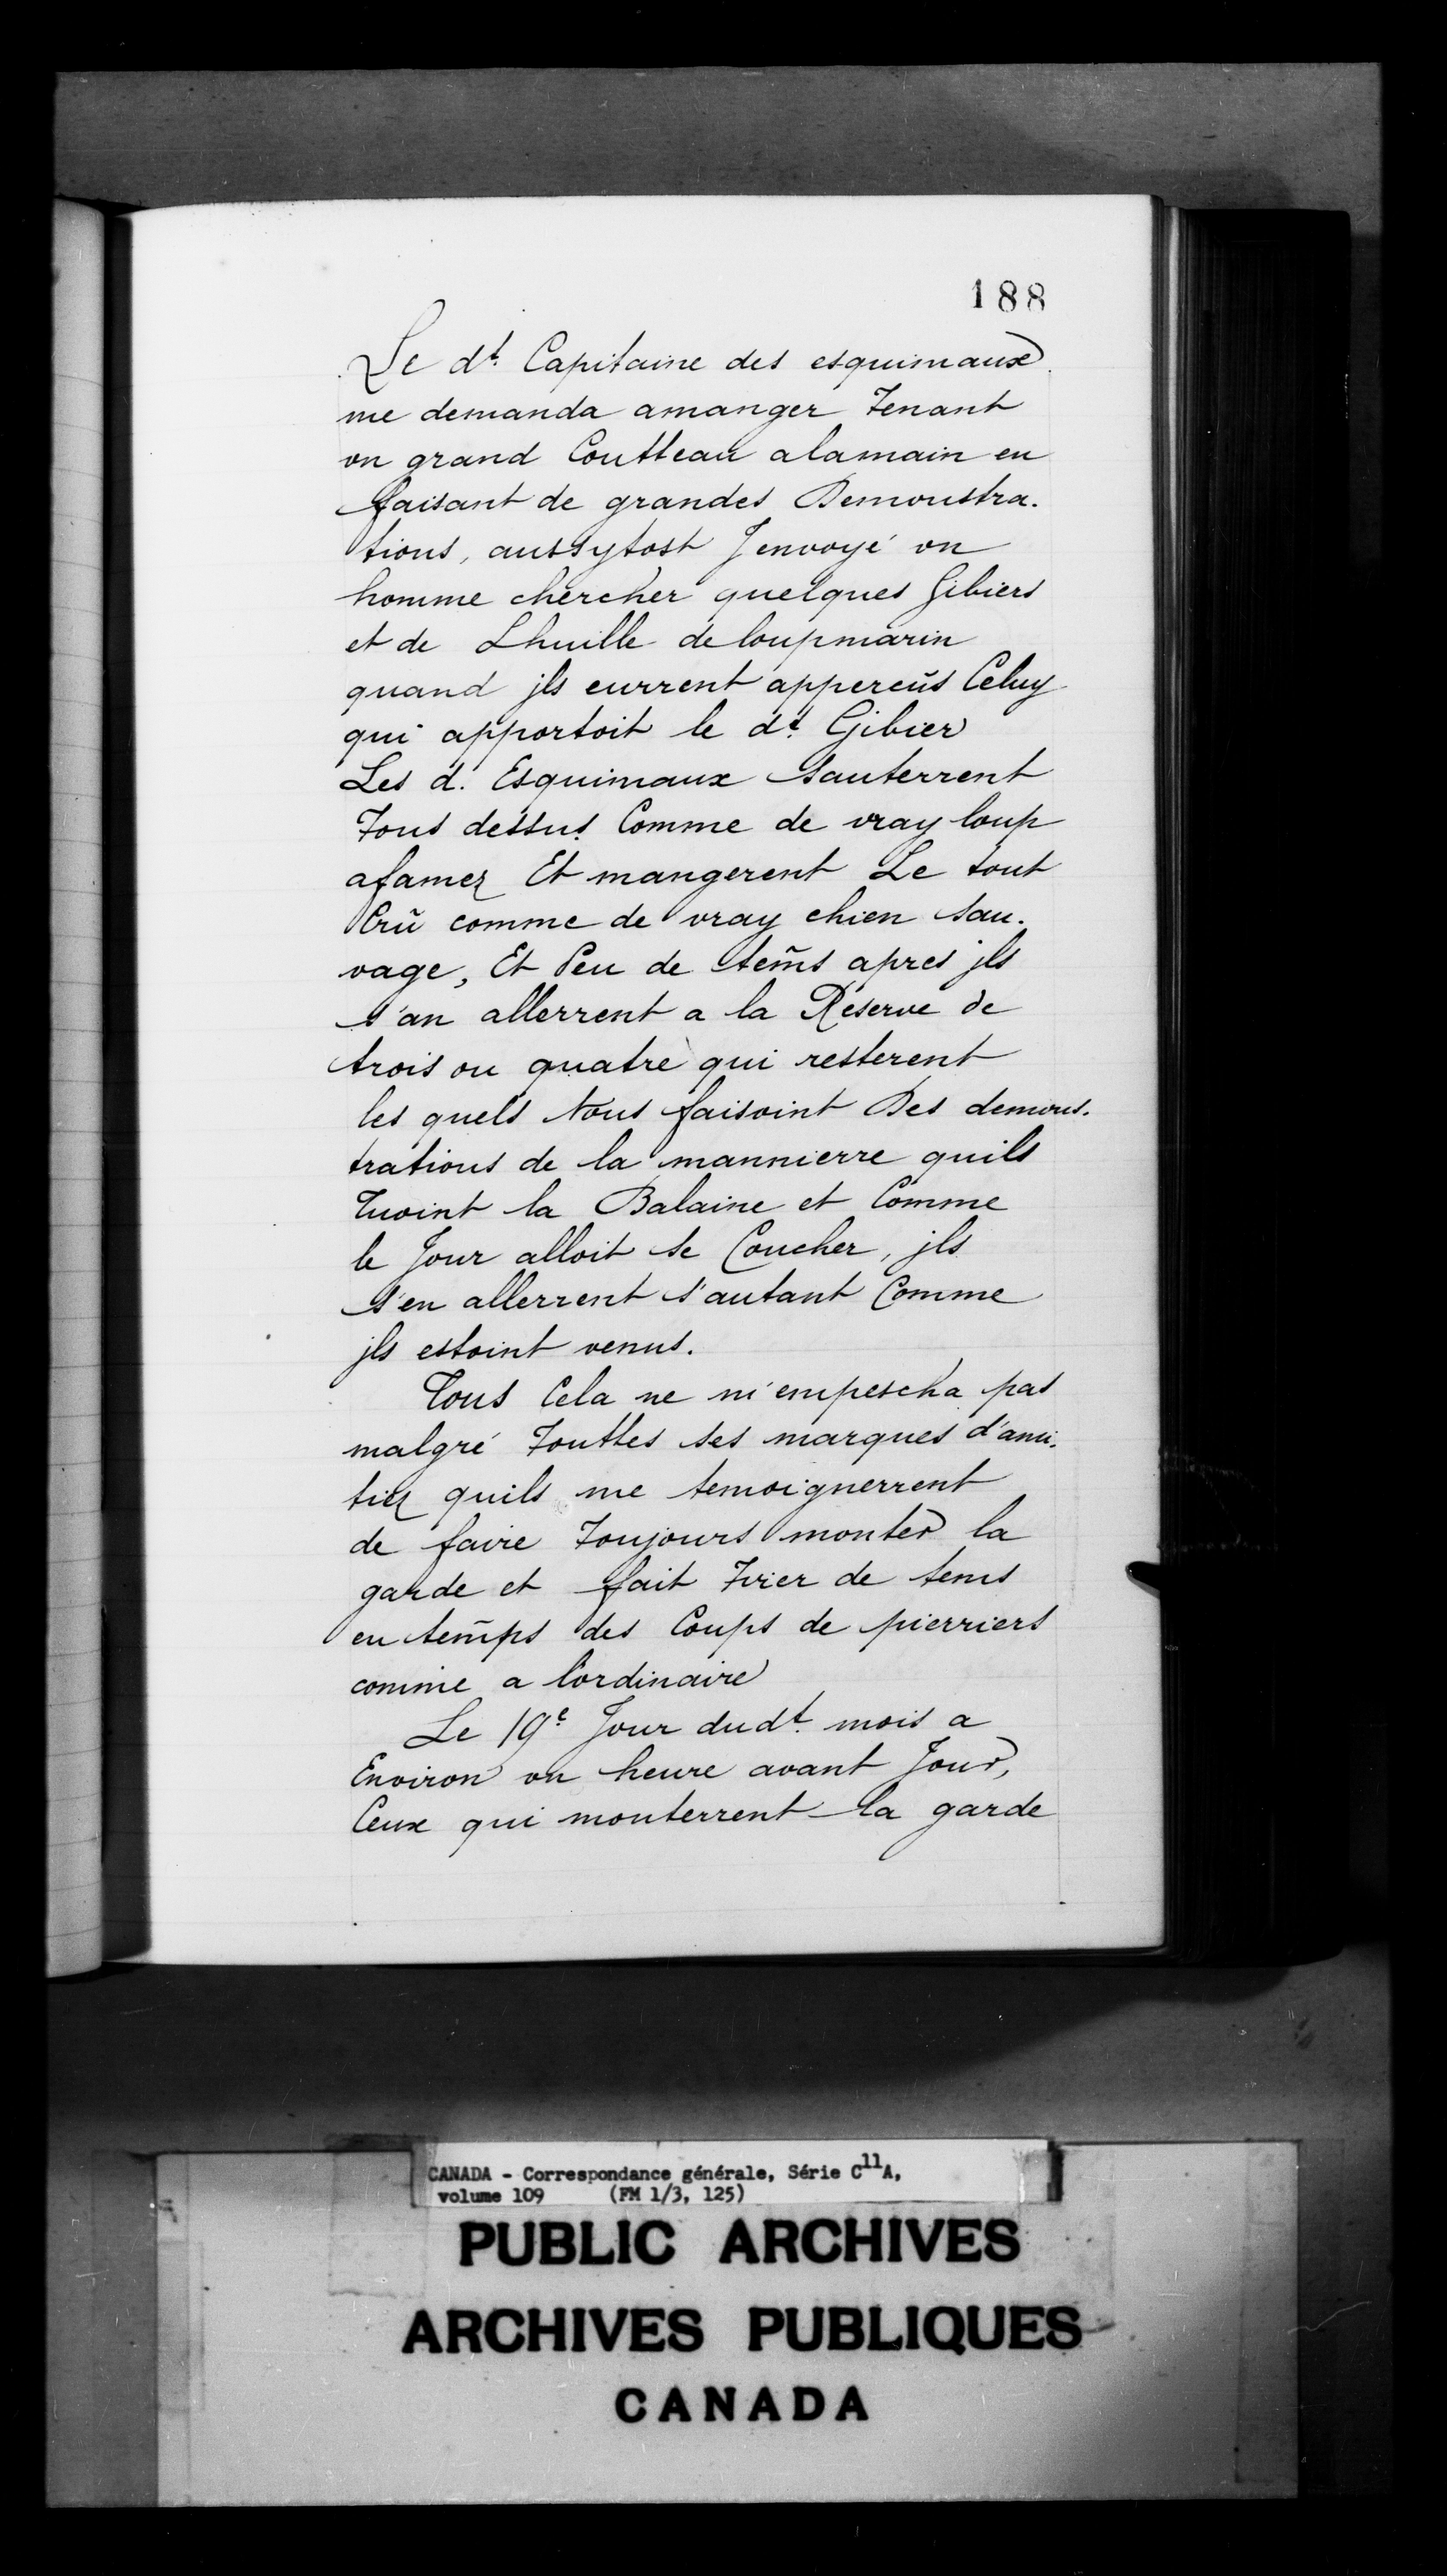 188
Le dt. Capitaine des esquimaux
me demanda amanger Tenant
vn grand Coutteau alamain en
faisant de grandes Demonstra.
tions, aussytost Jenvoyé vn
homme chercher quelques Gibiers
et de Lhuille de loupmarin
quand jls eurrent appercûs Celuy
qui apportoit le dt. Gibier
Les d. Esquimaux sauterrent
Tous dessus Comme de vray loup
afamez Et mangerent Le tout
Crû comme de vray chien sau.
vage, Et Peu de tem̃s apres jls
s'an allerrent a la Réserve de
trois ou quatre qui resterent
les quels Nous faisoint Des demons.
trations de la mannierre quils
Tuoint la Balaine et Comme
le Jour alloit se Coucher, jls
s'en allerrent s'autant Comme
jls estoint venus.
Tous Cela ne m'empescha pas
malgré Touttes ses marques d'ami.
tiez quils me temoignerrent
de faire Toujours monter la
garde et fait Tirer de tems
en tem̃ps des Coups de pierriers
comme a l'ordinaire
Le 19e. Jour dudt. mois a
Environ vn heure avant Jour,
Ceux qui monterrent la garde
CANADA - Correspondance générale, Série C11A,
volume 109 (FM 1/3, 125)
PUBLIC ARCHIVES
ARCHIVES PUBLIQUES
CANADA